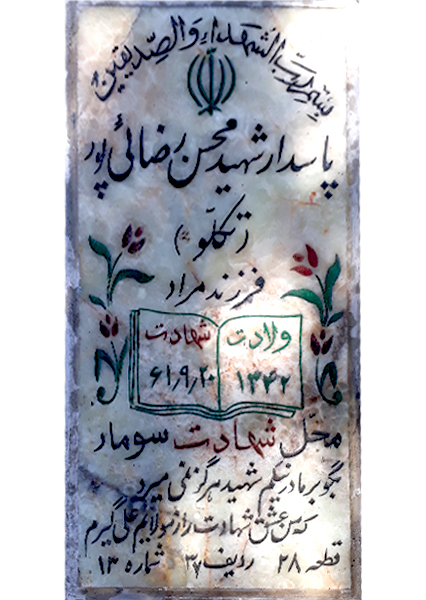 بسم رب الشهداء و الصدیقین
پاسدار شهید محسن رضائی پور
(تکلو)
فرزند مراد
ولادت شهادت
۱۳۴۲ ۶۱٫۹٫۲۰
محل شهادت سومار
بگو بر مادر شهید هرگز نمی میرد
که من عشق شهادت را ز مولایم علی گیرم
قطعه ۲۸ ردیف ۳۷ شماره ۱۳